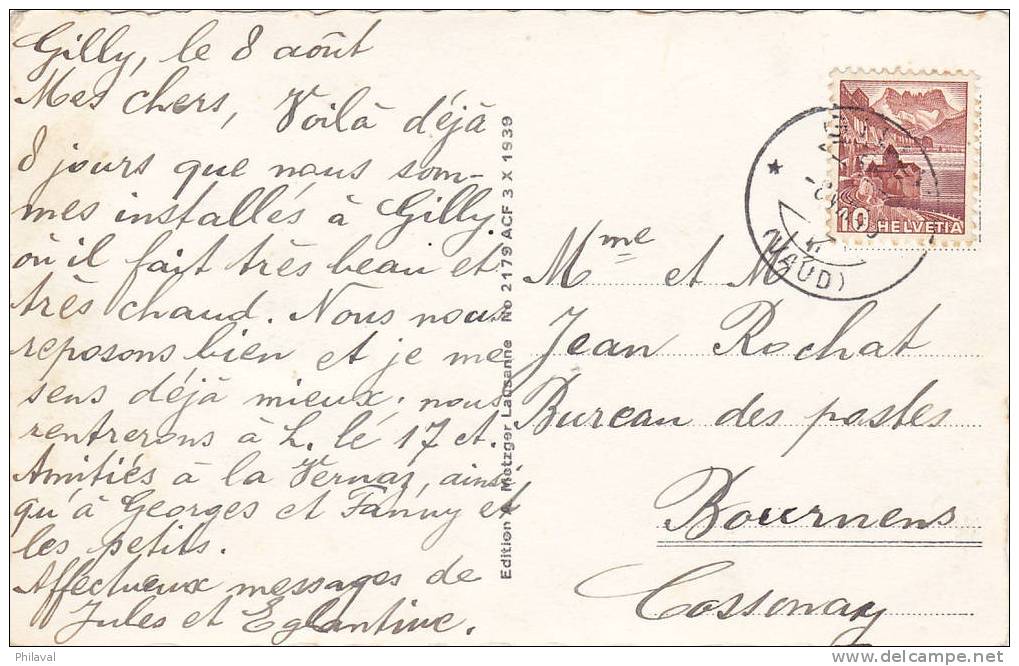 Gilly, le 8 août
Mes chers, Voilà déjà
8 jours que nous som-
mes installés à Gilly.
où il fait très beau et
très chaud. Nous nous
reposons bien et je me
sens déjà mieux. nous
rentrerons à L. le 17 ct.
Amitiés à la Vernaz, ainsi
qu'à Georges et Fanny et
les petits.
Affectueux messages de
Jules et Eglantine.
Edition A. Metzger Lausanne No 2179 ACF 3 X 1939
10 HELVETIA
(VAUD)
Mme et M
Jean Rochat
Bureau des postes
Bournens
Cossonay
Philaval
delcampe.net